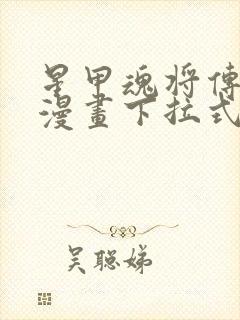 星甲魂将傳
漫畫下拉式
吴聪娣